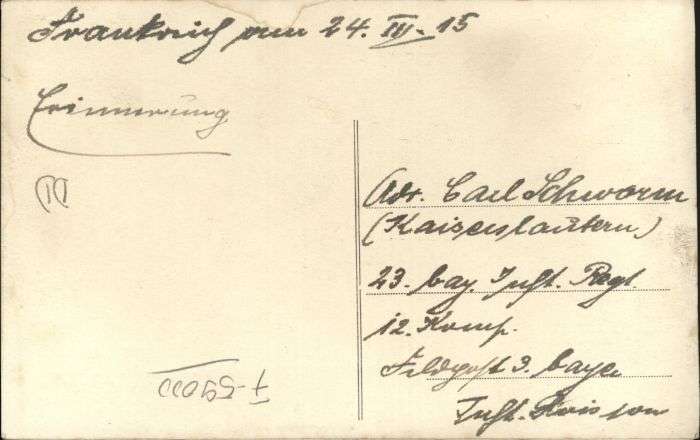 Frankreich am 24. III. 15
Erinnerung
Adr. Carl Schworm
(Kaiserslautern)
23. bay. Inft. Regt.
12. Komp.
Feldpost 3. baye
Inft. Division